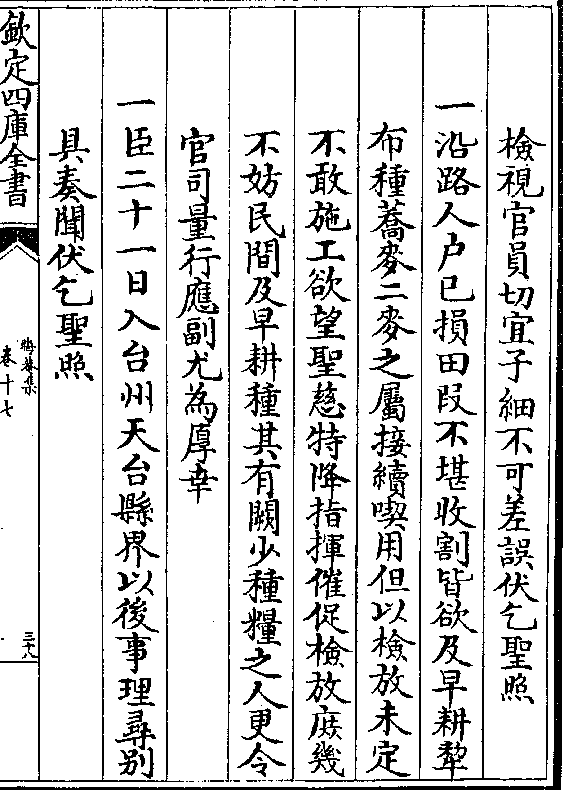 檢視官員切宜子細不可差誤伏乞聖照
一沿路人户已損田段不堪收割皆欲及早耕犂
布種蕎麥二麥之屬接續喫用但以檢放未定
不敢施工欲望聖慈特降指揮催促檢放庶幾
不妨民間及早耕種其有闕少種糧之人更令
官司量行應副尤為厚幸
一臣二十一日入台州天台縣界以後事理尋别
具奏聞伏乞聖照
欽定四庫全書
晦菴集
卷十七
三十八